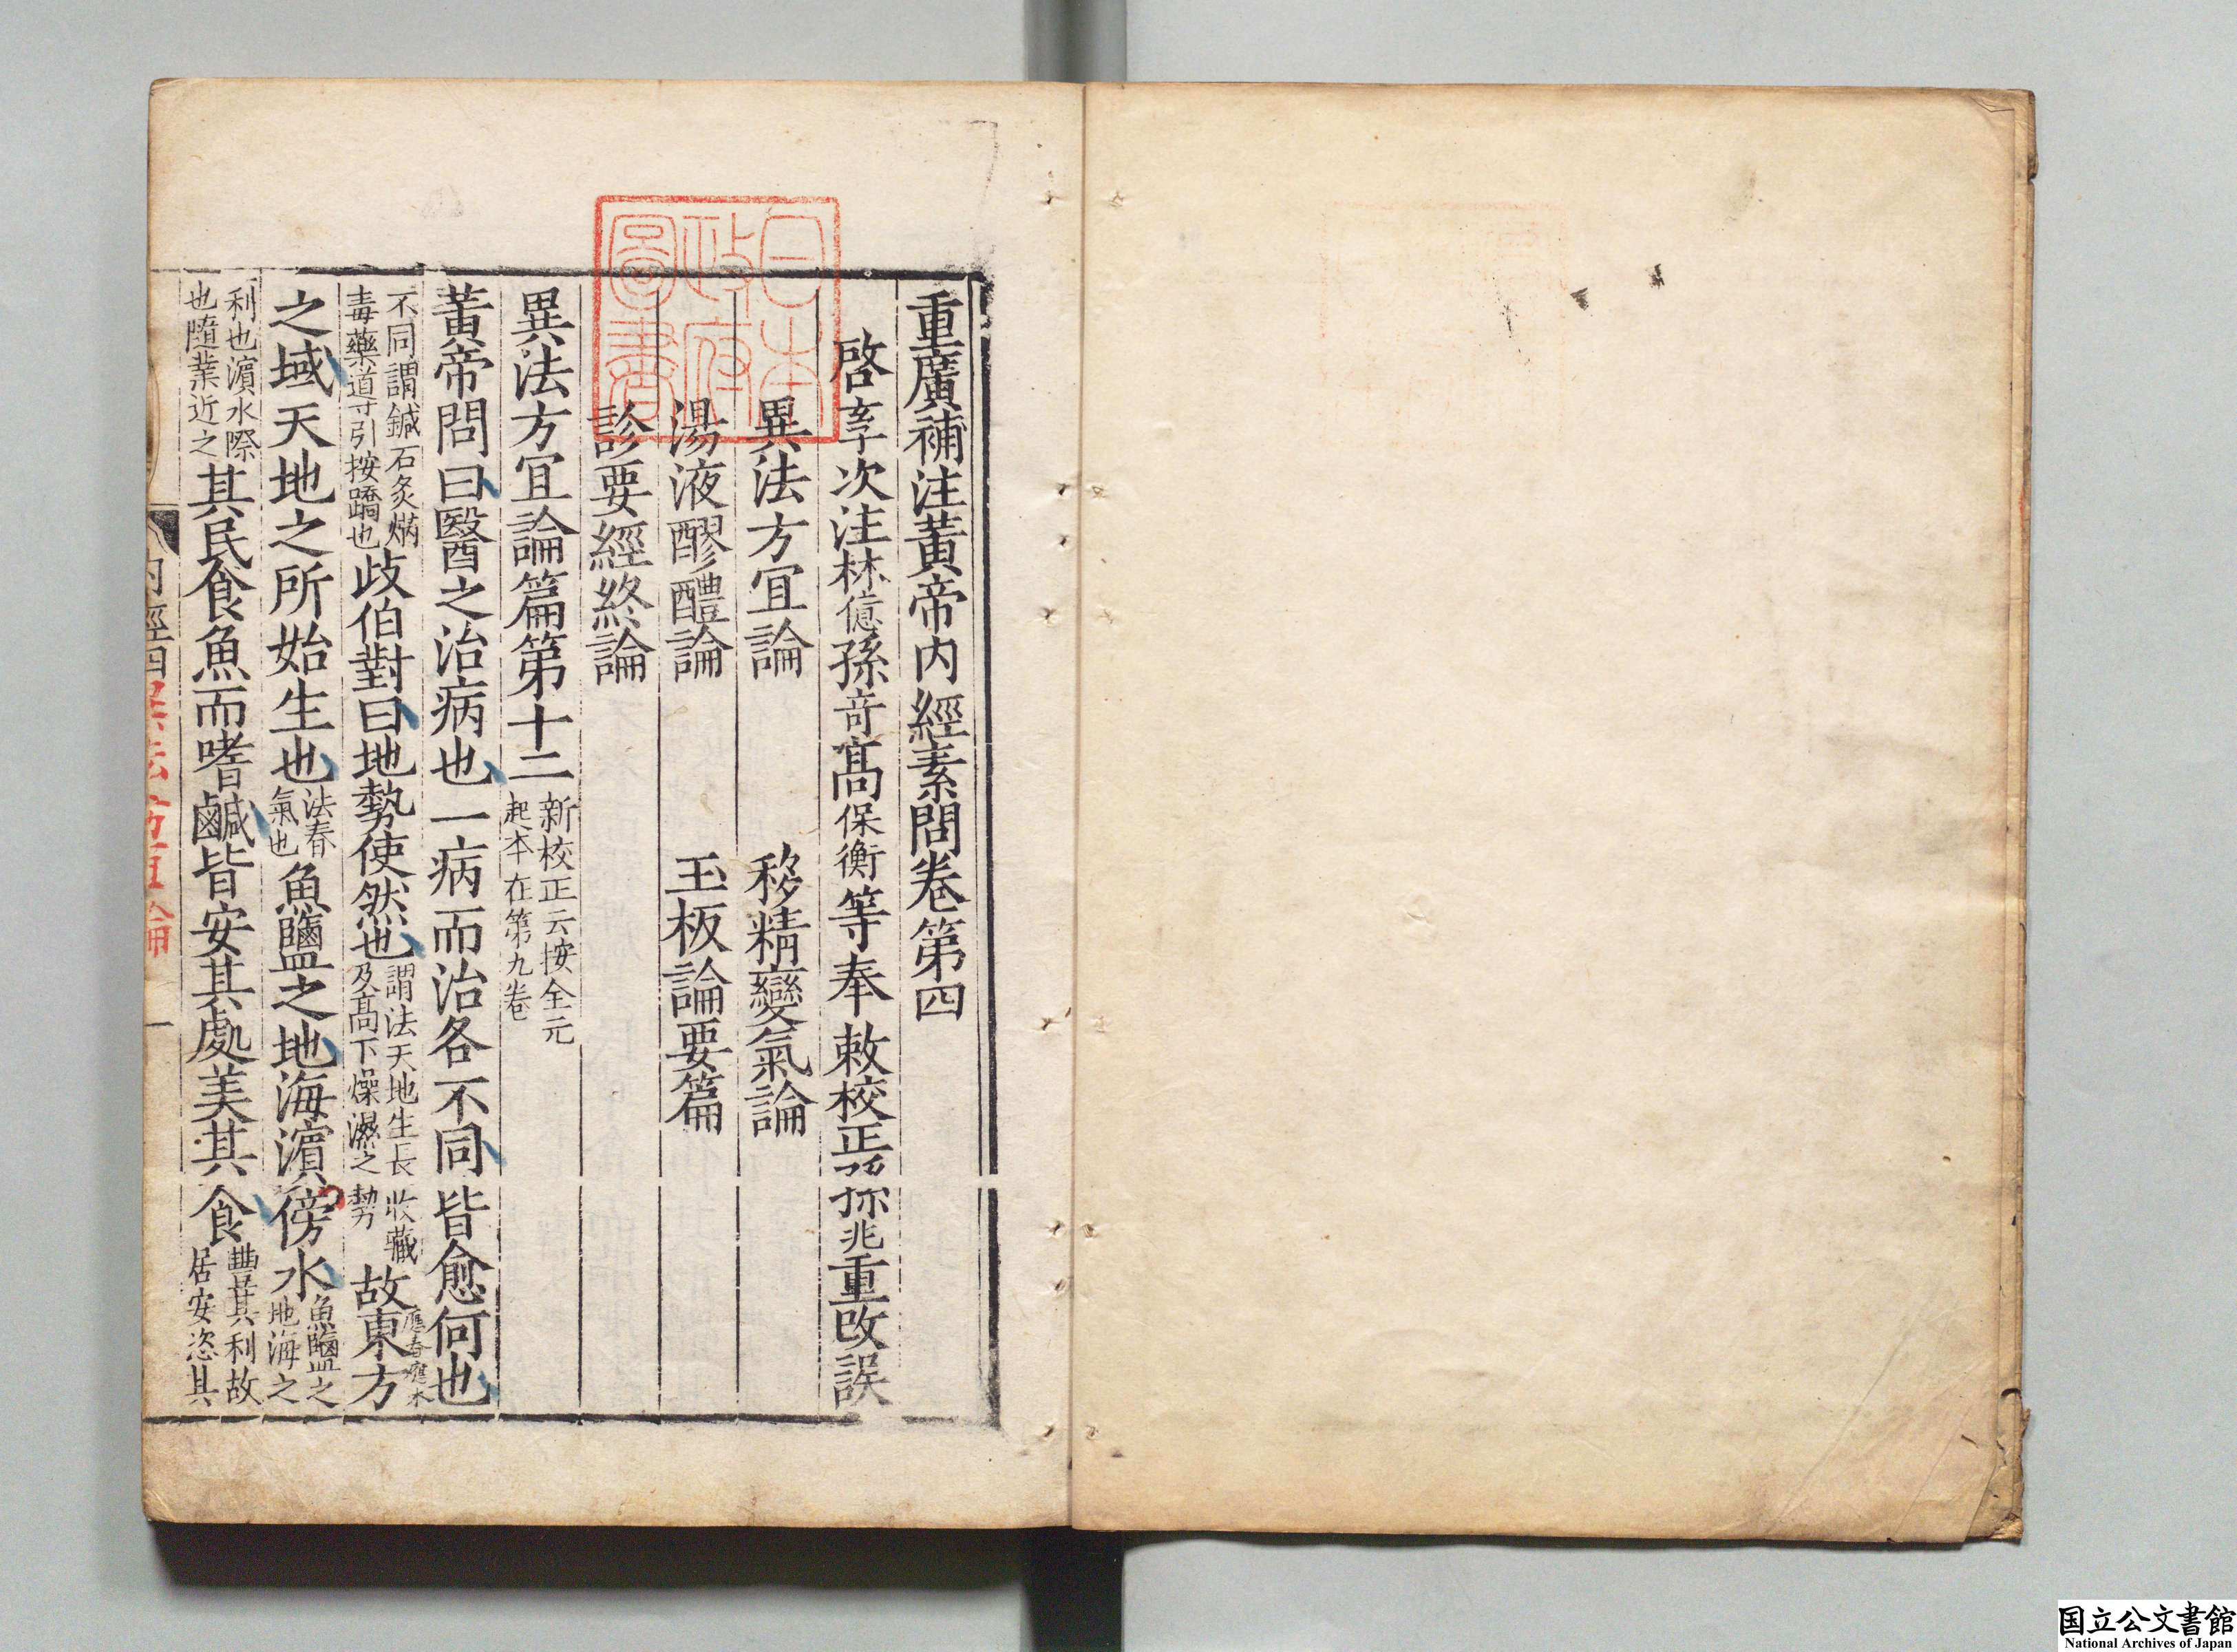 重廣補注黃帝内經素問卷第四
啓玄次注林億孫竒髙保衡等奉敕校正孫兆重改誤
異法方宜論　移精變氣論
湯液醪醴論　玉板論要篇
診要經終論
異法方宜論篇第十二新校正云按全元起本在第九卷
黃帝問曰醫之治病也一病而治各不同皆愈何也
不同謂鍼石灸焫毒藥道引按蹻也歧伯對曰地勢使然也謂法天地生長收藏及髙下燥濕之勢故東方應春
之域天地之所始生也法春氣也魚鹽之地海濵傍水魚鹽之地海之
利也濵水際也隨業近之其民食魚而嗜鹹皆安其處美其食豐其利故居安恣其
内經四　異法方宜論　一
日本政府圖書
国立公文書館
National Archives of Japan